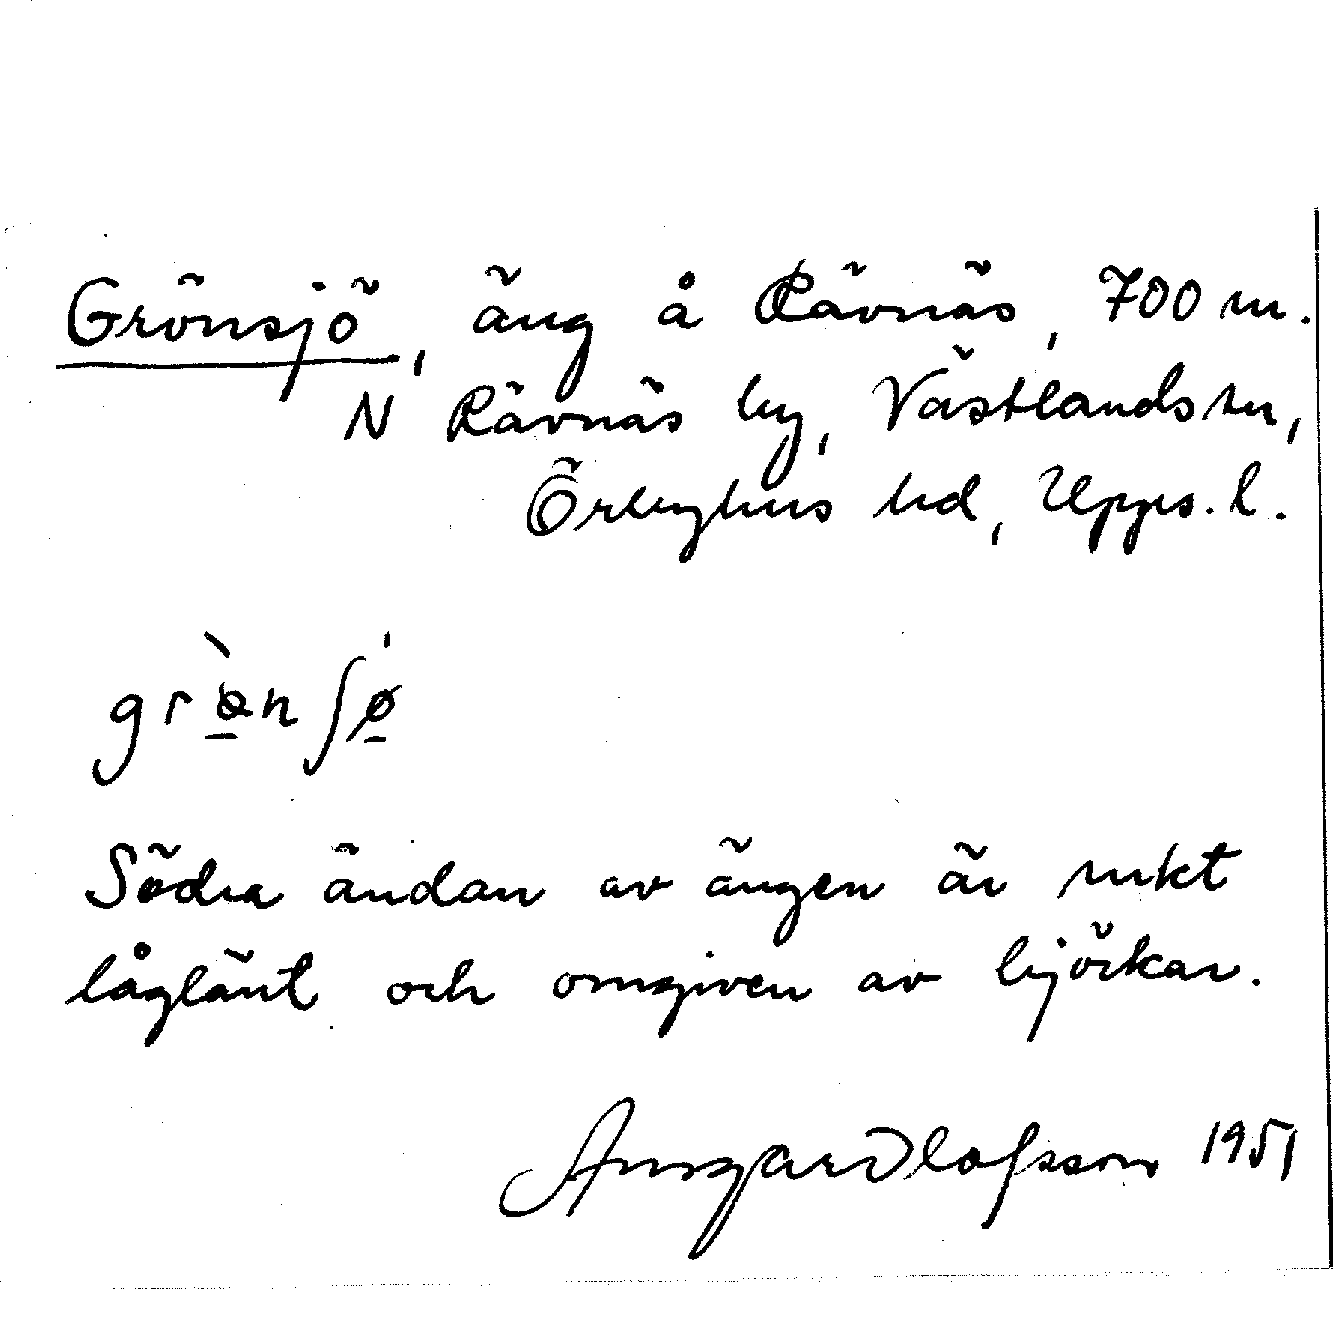 Grönsjö, äng å Rävnäs, 700 m.
N Rävnäs by, Västlands sn,
Örbyhus hd, Upps. l.
Södra ändan av ängen är mkt
låglänt och omgiven av björkar.
Ansgar Olofsson 1951